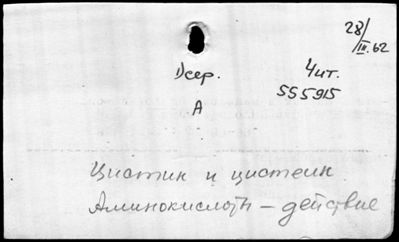 28/III.62
Дсер. Чит.
555915
А
Цистин и цистеин
Аминокислоты – действие